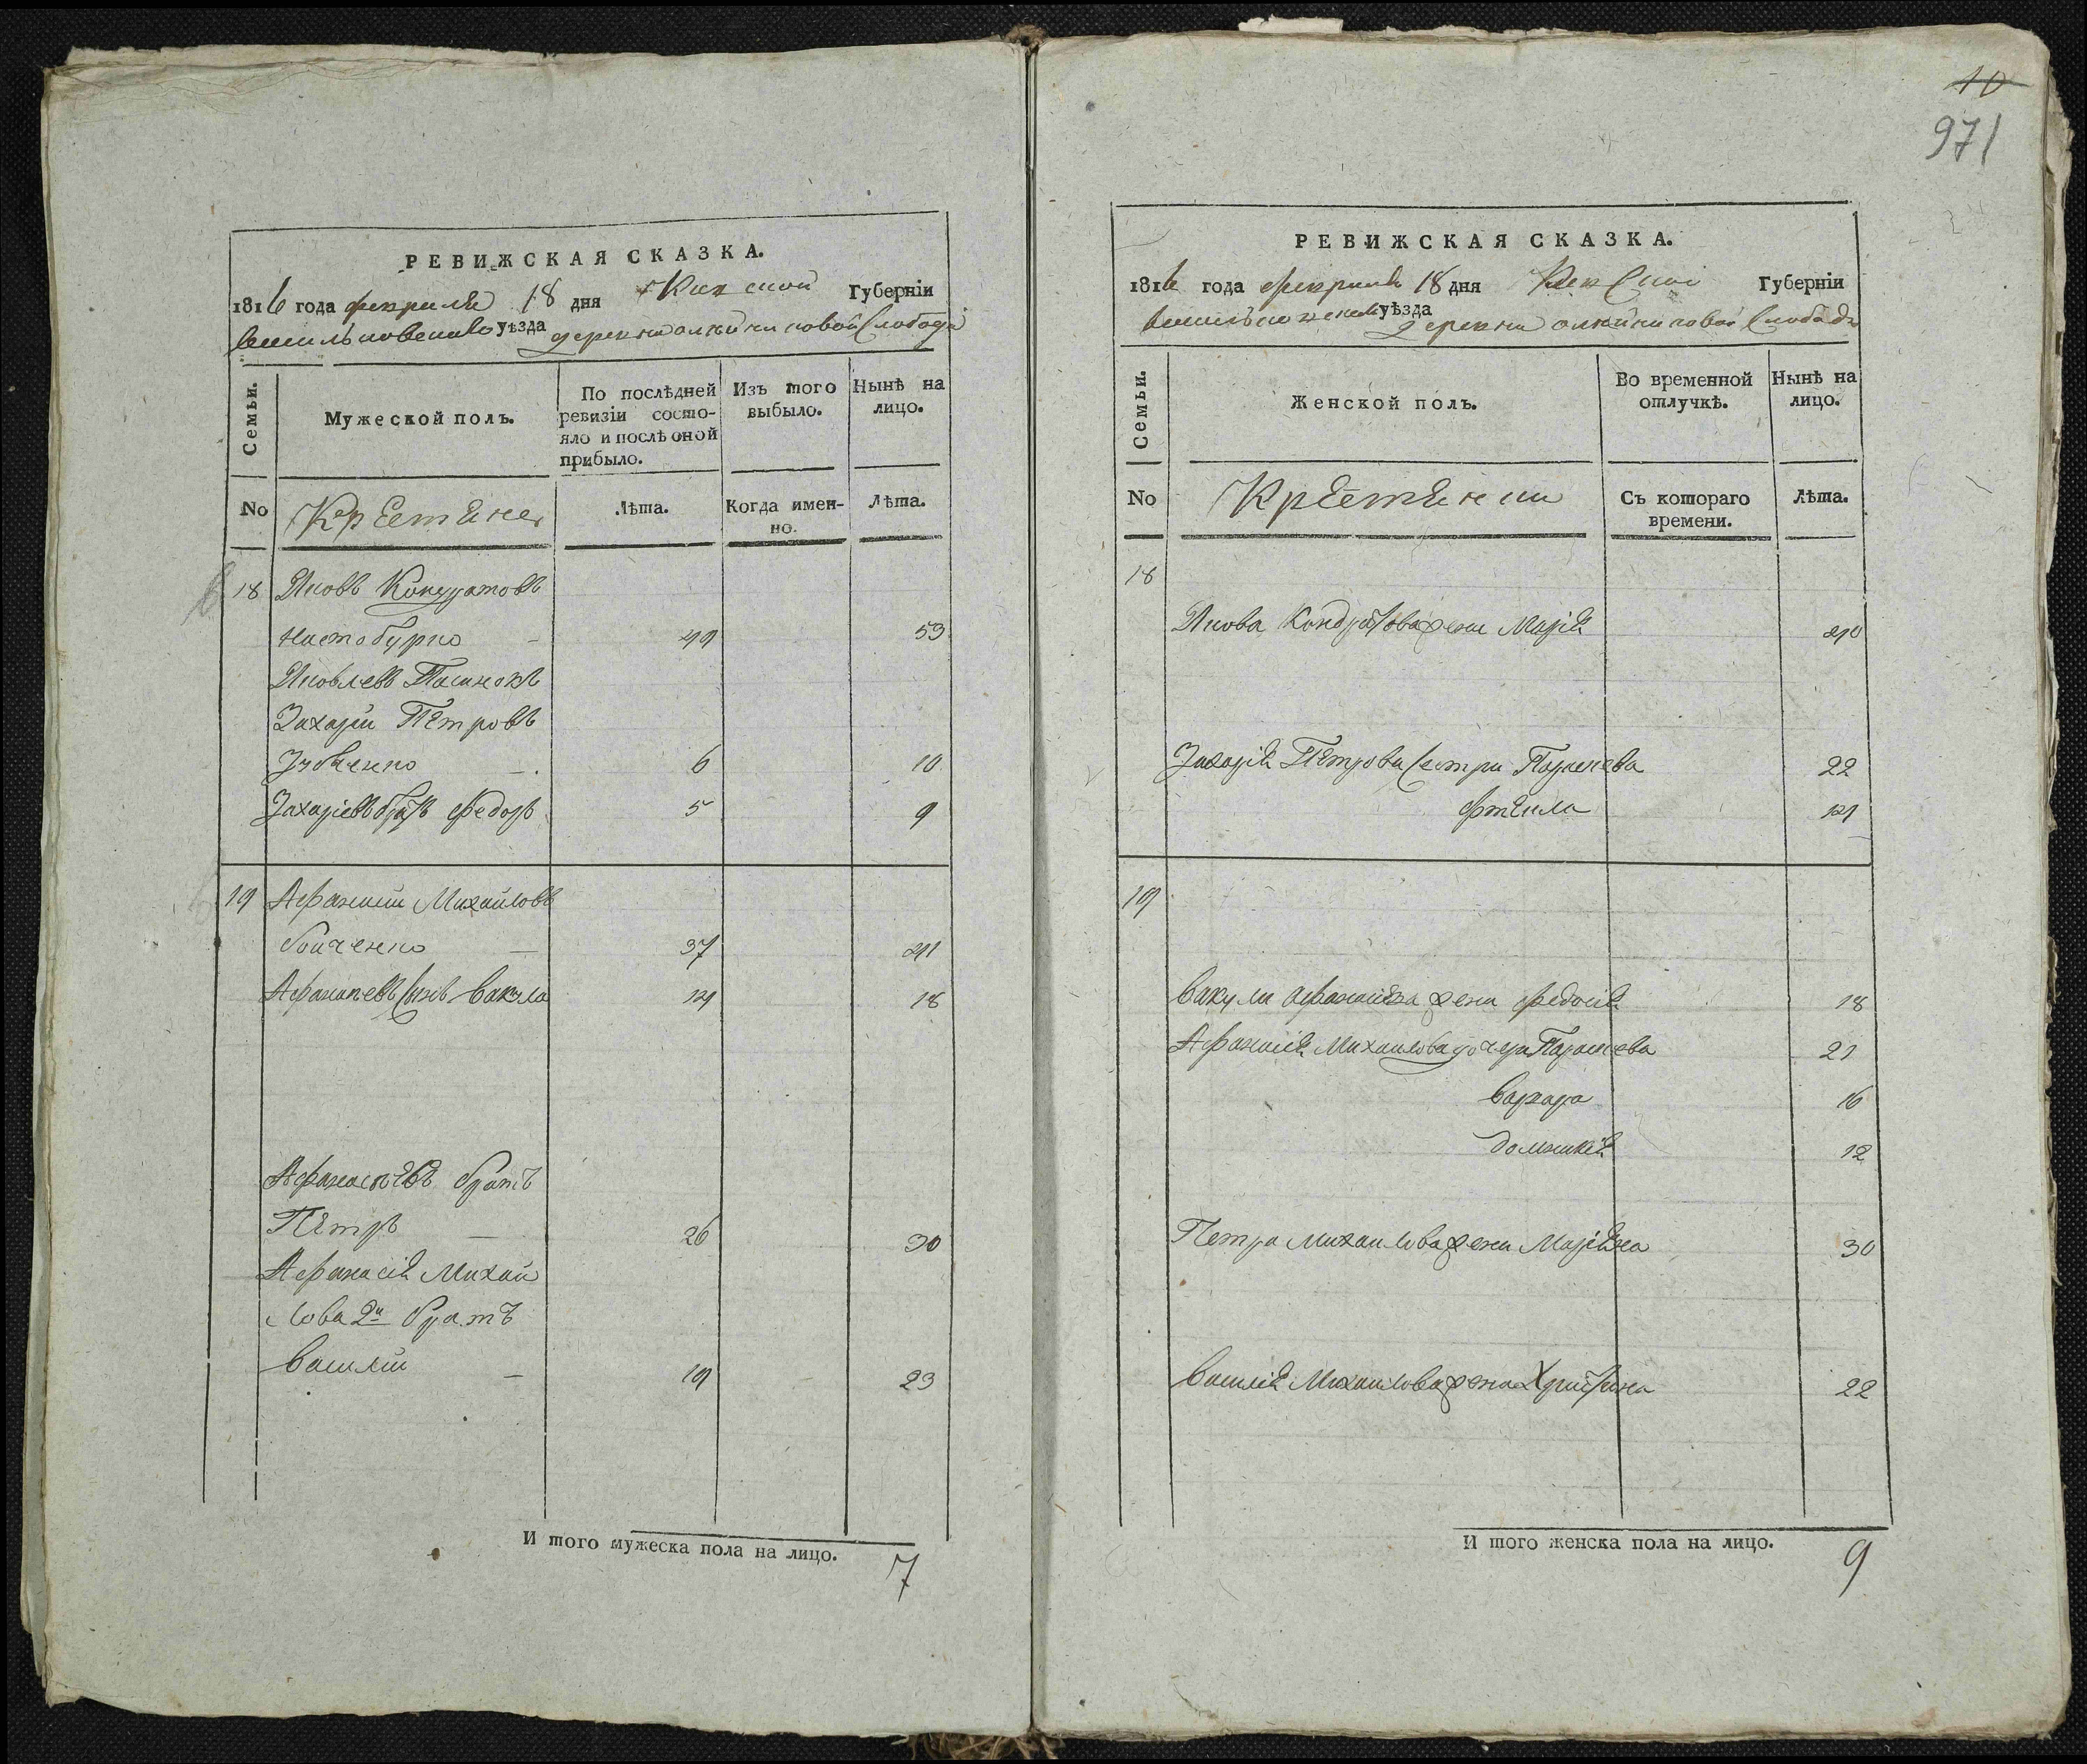 РЕВИЖСКАЯ СКАЗКА.
1816 года февраля 18 дня Киевской Губерніи
Васильковскаго уѣзда деревни Слободы
Семьи.
Мужеской полъ.
По послѣдней ревизіи состояло и послѣ оной прибыло.
Изъ того выбыло.
Нынѣ на лицо.
No
Крестяне
Лѣта.
Когда именно.
Лѣта.
18 Яковъ Кондратовъ
49 53
Яковлевъ Пасинокъ
Захарій Петровъ
6 10
Захаріевъ братъ Федоръ 5 9
19 Афанасій Михайловъ
Бойченко 37 41
Афанасіевъ сынъ Вакула 14 18
Афанасіевъ братъ
Петръ 26 30
Афанасія Михай
лова 2й братъ
Василій 19 23
И того мужеска пола на лицо. 7
10
971
РЕВИЖСКАЯ СКАЗКА.
1816 года февраля 18 дня Киевской Губерніи
Васильковскаго уѣзда деревни Слободы
Семьи.
Женской полъ.
Во временной отлучкѣ.
Нынѣ на лицо.
No
Крестянки
Съ котораго времени.
Лѣта.
18
Якова Кондратова жена Марія 40
Захарія Петрова сестра Параскева 22
14
19
Вакулы Афанасіева жена Федосія 18
Афанасія Михайлова дочери Параскева 21
Варвара 16
Домникія 12
Петра Михайлова жена Маріяна 30
Василія Михайлова жена Христина 22
И того женска пола на лицо. 9